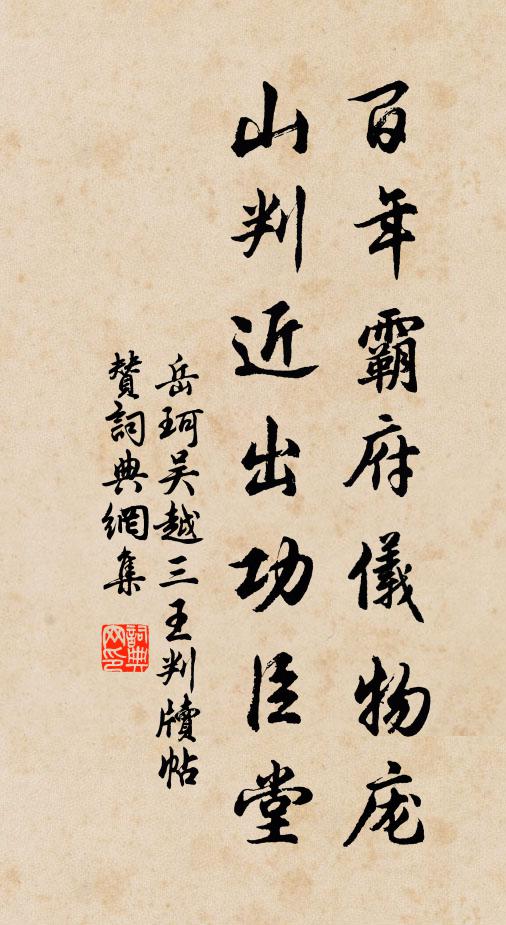 百年霸府儀物庞
山判近出功臣堂
岳珂吴越三王判牘帖
贊詞典網集
詞典网印